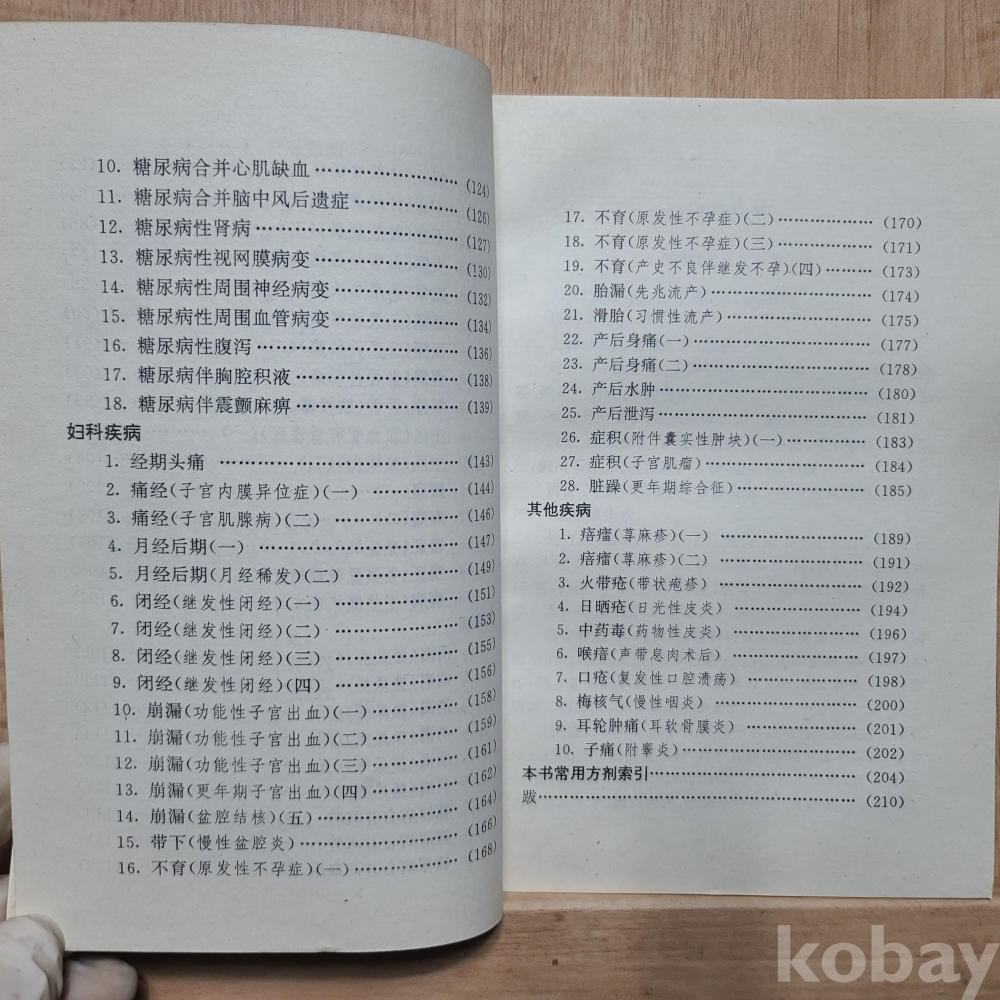 10. 糖尿病合并心肌缺血……………………(124)
11. 糖尿病合并脑中风后遗症………………(126)
12. 糖尿病性肾病……………………………(127)
13. 糖尿病性视网膜病变……………………(130)
14. 糖尿病性周围神经病变…………………(132)
15. 糖尿病性周围血管病变…………………(134)
16. 糖尿病性腹泻……………………………(136)
17. 糖尿病伴胸腔积液………………………(138)
18. 糖尿病伴震颤麻痹………………………(139)
妇科疾病
1. 经期头痛 …………………………………(143)
2. 痛经(子宫内膜异位症)(一) ……………(144)
3. 痛经(子宫肌腺病)(二) …………………(146)
4. 月经后期(一) ……………………………(147)
5. 月经后期(月经稀发)(二) ………………(149)
6. 闭经(继发性闭经)(一) …………………(151)
7. 闭经(继发性闭经)(二) …………………(153)
8. 闭经(继发性闭经)(三) …………………(155)
9. 闭经(继发性闭经)(四) …………………(156)
10. 崩漏(功能性子宫出血)(一)……………(158)
11. 崩漏(功能性子宫出血)(二)……………(159)
12. 崩漏(功能性子宫出血)(三)……………(161)
13. 崩漏(更年期子宫出血)(四)……………(162)
14. 崩漏(盆腔结核)(五)……………………(164)
15. 带下(慢性盆腔炎)………………………(166)
16. 不育(原发性不孕症)(一)………………(168)
17. 不育(原发性不孕症)(二)………………(170)
18. 不育(原发性不孕症)(三)………………(171)
19. 不育(产史不良伴继发不孕)(四)………(173)
20. 胎漏(先兆流产)…………………………(174)
21. 滑胎(习惯性流产)………………………(175)
22. 产后身痛(一)……………………………(177)
23. 产后身痛(二)……………………………(178)
24. 产后水肿…………………………………(180)
25. 产后泄泻…………………………………(181)
26. 症积(附件囊实性肿块)(一)……………(183)
27. 症积(子宫肌瘤)…………………………(184)
28. 脏躁(更年期综合征)……………………(185)
其他疾病
1. 㾦瘤(荨麻疹)(一)………………………(189)
2. 㾦瘤(荨麻疹)(二)………………………(191)
3. 火带疮(带状疱疹)………………………(192)
4. 日晒疮(日光性皮炎)……………………(194)
5. 中药毒(药物性皮炎)……………………(196)
6. 喉瘖(声带息肉术后)……………………(197)
7. 口疮(复发性口腔溃疡)…………………(198)
8. 梅核气(慢性咽炎)………………………(200)
9. 耳轮肿痛(耳软骨膜炎)…………………(201)
10. 子痛(附睾炎)……………………………(202)
本书常用方剂索引……………………………(204)
跋………………………………………………(210)
kobay